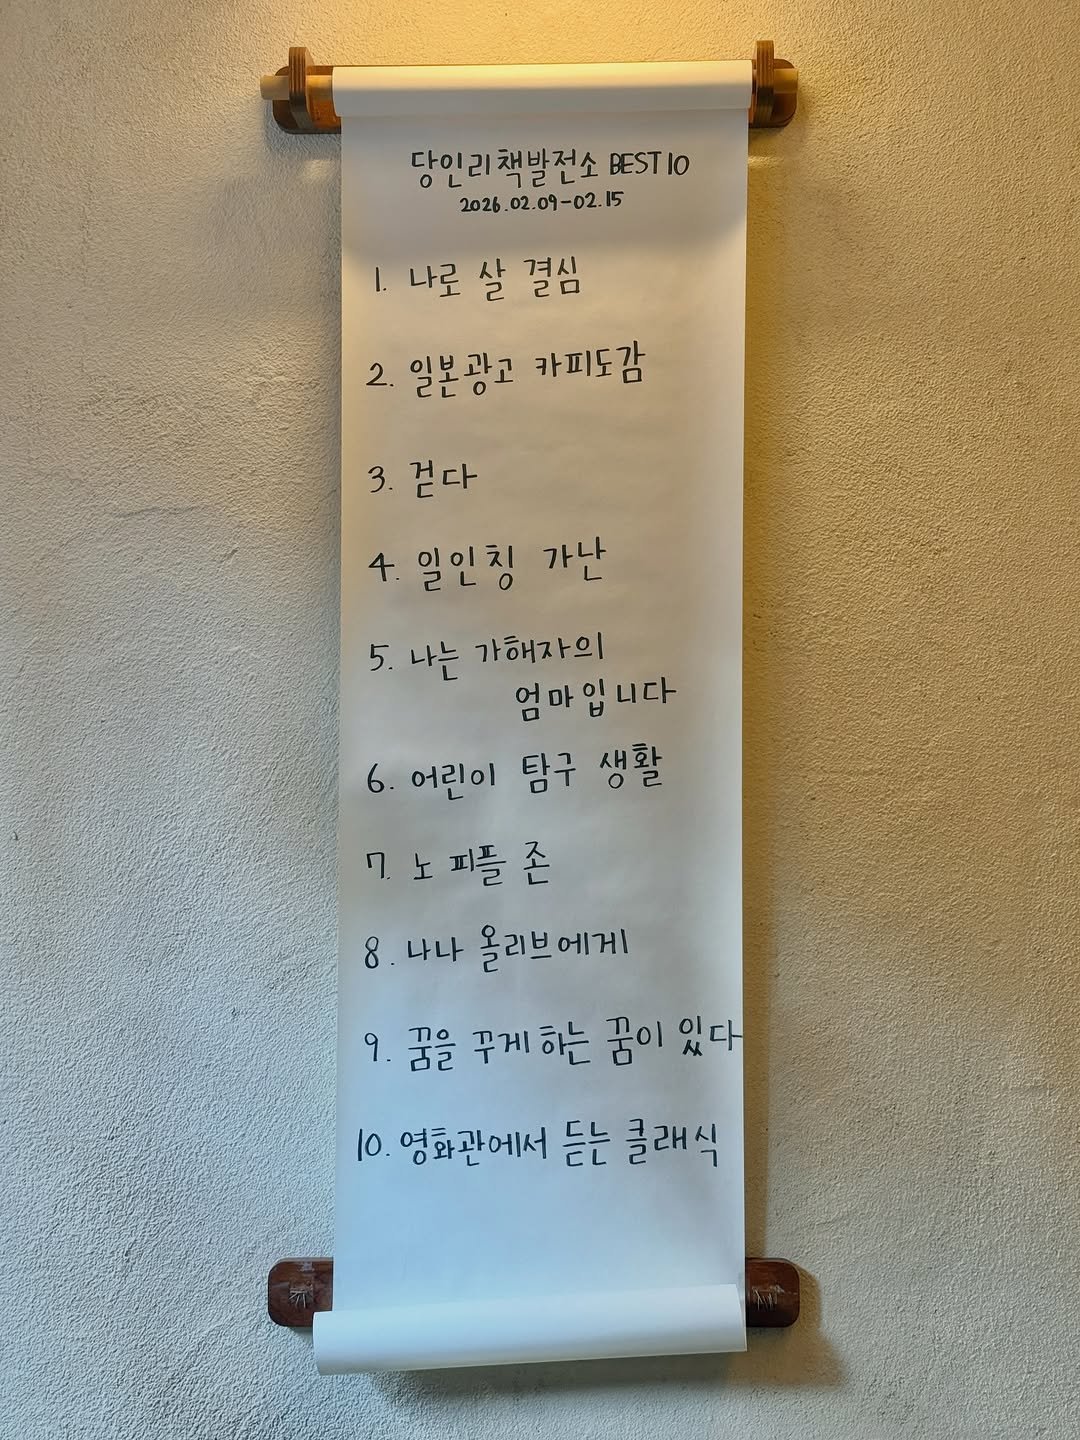 당인리책발전소 BEST 10
2026.02.09-02.15
1. 나로 살 결심
2. 일본광고 카피도감
3. 걷다
4. 일인칭 가난
5. 나는 가해자의
엄마입니다
6. 어린이 탐구 생활
7. 노 피플 존
8. 나나 올리브에게
9. 꿈을 꾸게 하는 꿈이 있다
10. 영화관에서 듣는 클래식